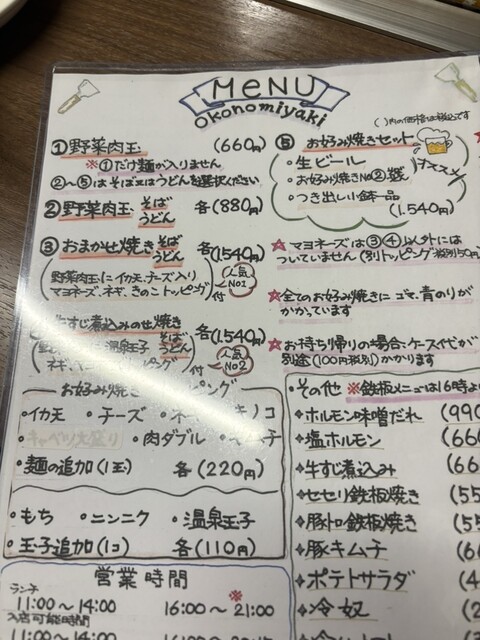 MENU
Okonomiyaki
( )内の価格は税込です
①野菜肉玉 (660円)
※①だけ麺が入りません
②〜⑤はそば又はうどんを選択ください
②野菜肉玉 そば うどん 各(880円)
③おまかせ焼き そば うどん 各(1.540円)
(野菜肉玉にイカ天、チーズ入り
マヨネーズ、ネギ、きのこトッピング)付
人気No1
牛すじ煮込みのせ焼き そば うどん 各(1.540円)
温泉玉子
付
人気No2
お好み焼き ピング
・イカ天 ・チーズ
キャベツ大盛り ・肉ダブル
・麺の追加(1玉) 各(220円)
・もち ・ニンニク ・温泉玉子
・玉子追加(1コ) 各(110円)
営業時間
ランチ
11:00〜14:00 16:00〜※21:00
入店可能時間
⑤お好み焼きセット
・生ビール
・お好み焼きNo②
・つき出し小鉢一品
(1.540円)
オススメ
☆マヨネーズは③④以外には
ついていません(別トッピング税別50円)
☆全てのお好み焼きにゴマ、青のりが
かかっています
☆お持ち帰りの場合、ケース代が
別途(100円税別)かかります
・その他 ※鉄板メニューは16時よ
❖ホルモン味噌だれ (990
❖塩ホルモン (660
❖牛すじ煮込み (66
❖セセリ鉄板焼き (55
❖豚トロ鉄板焼き (55
❖豚キムチ (6
❖ポテトサラダ (4
❖冷奴 (